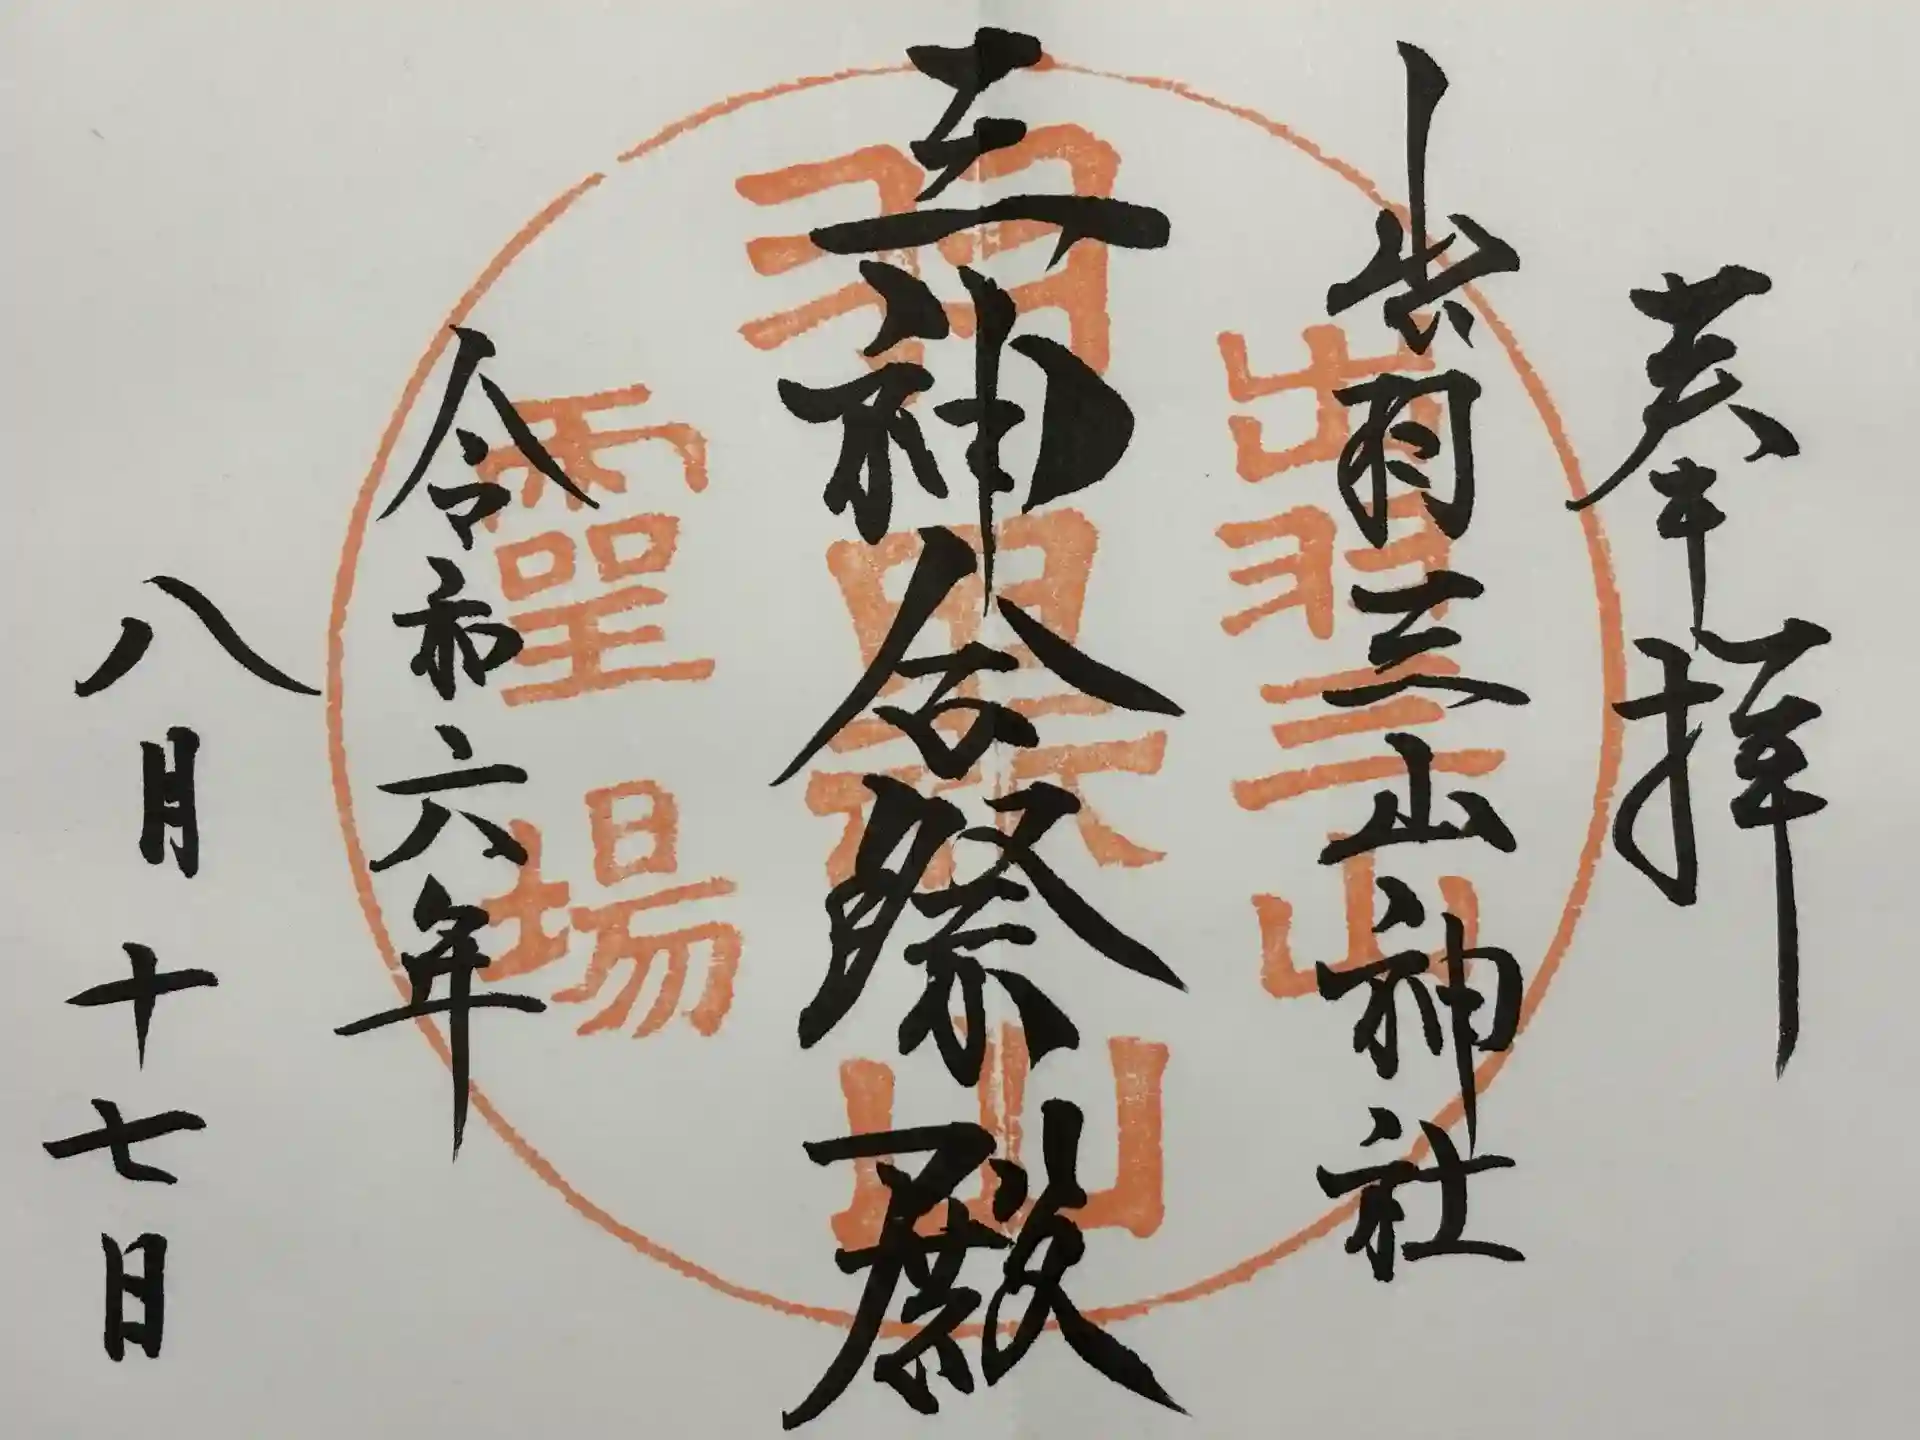 奉拝
出羽三山神社
三神合祭殿
令和六年
八月十七日
出羽三山
羽黒山
霊場